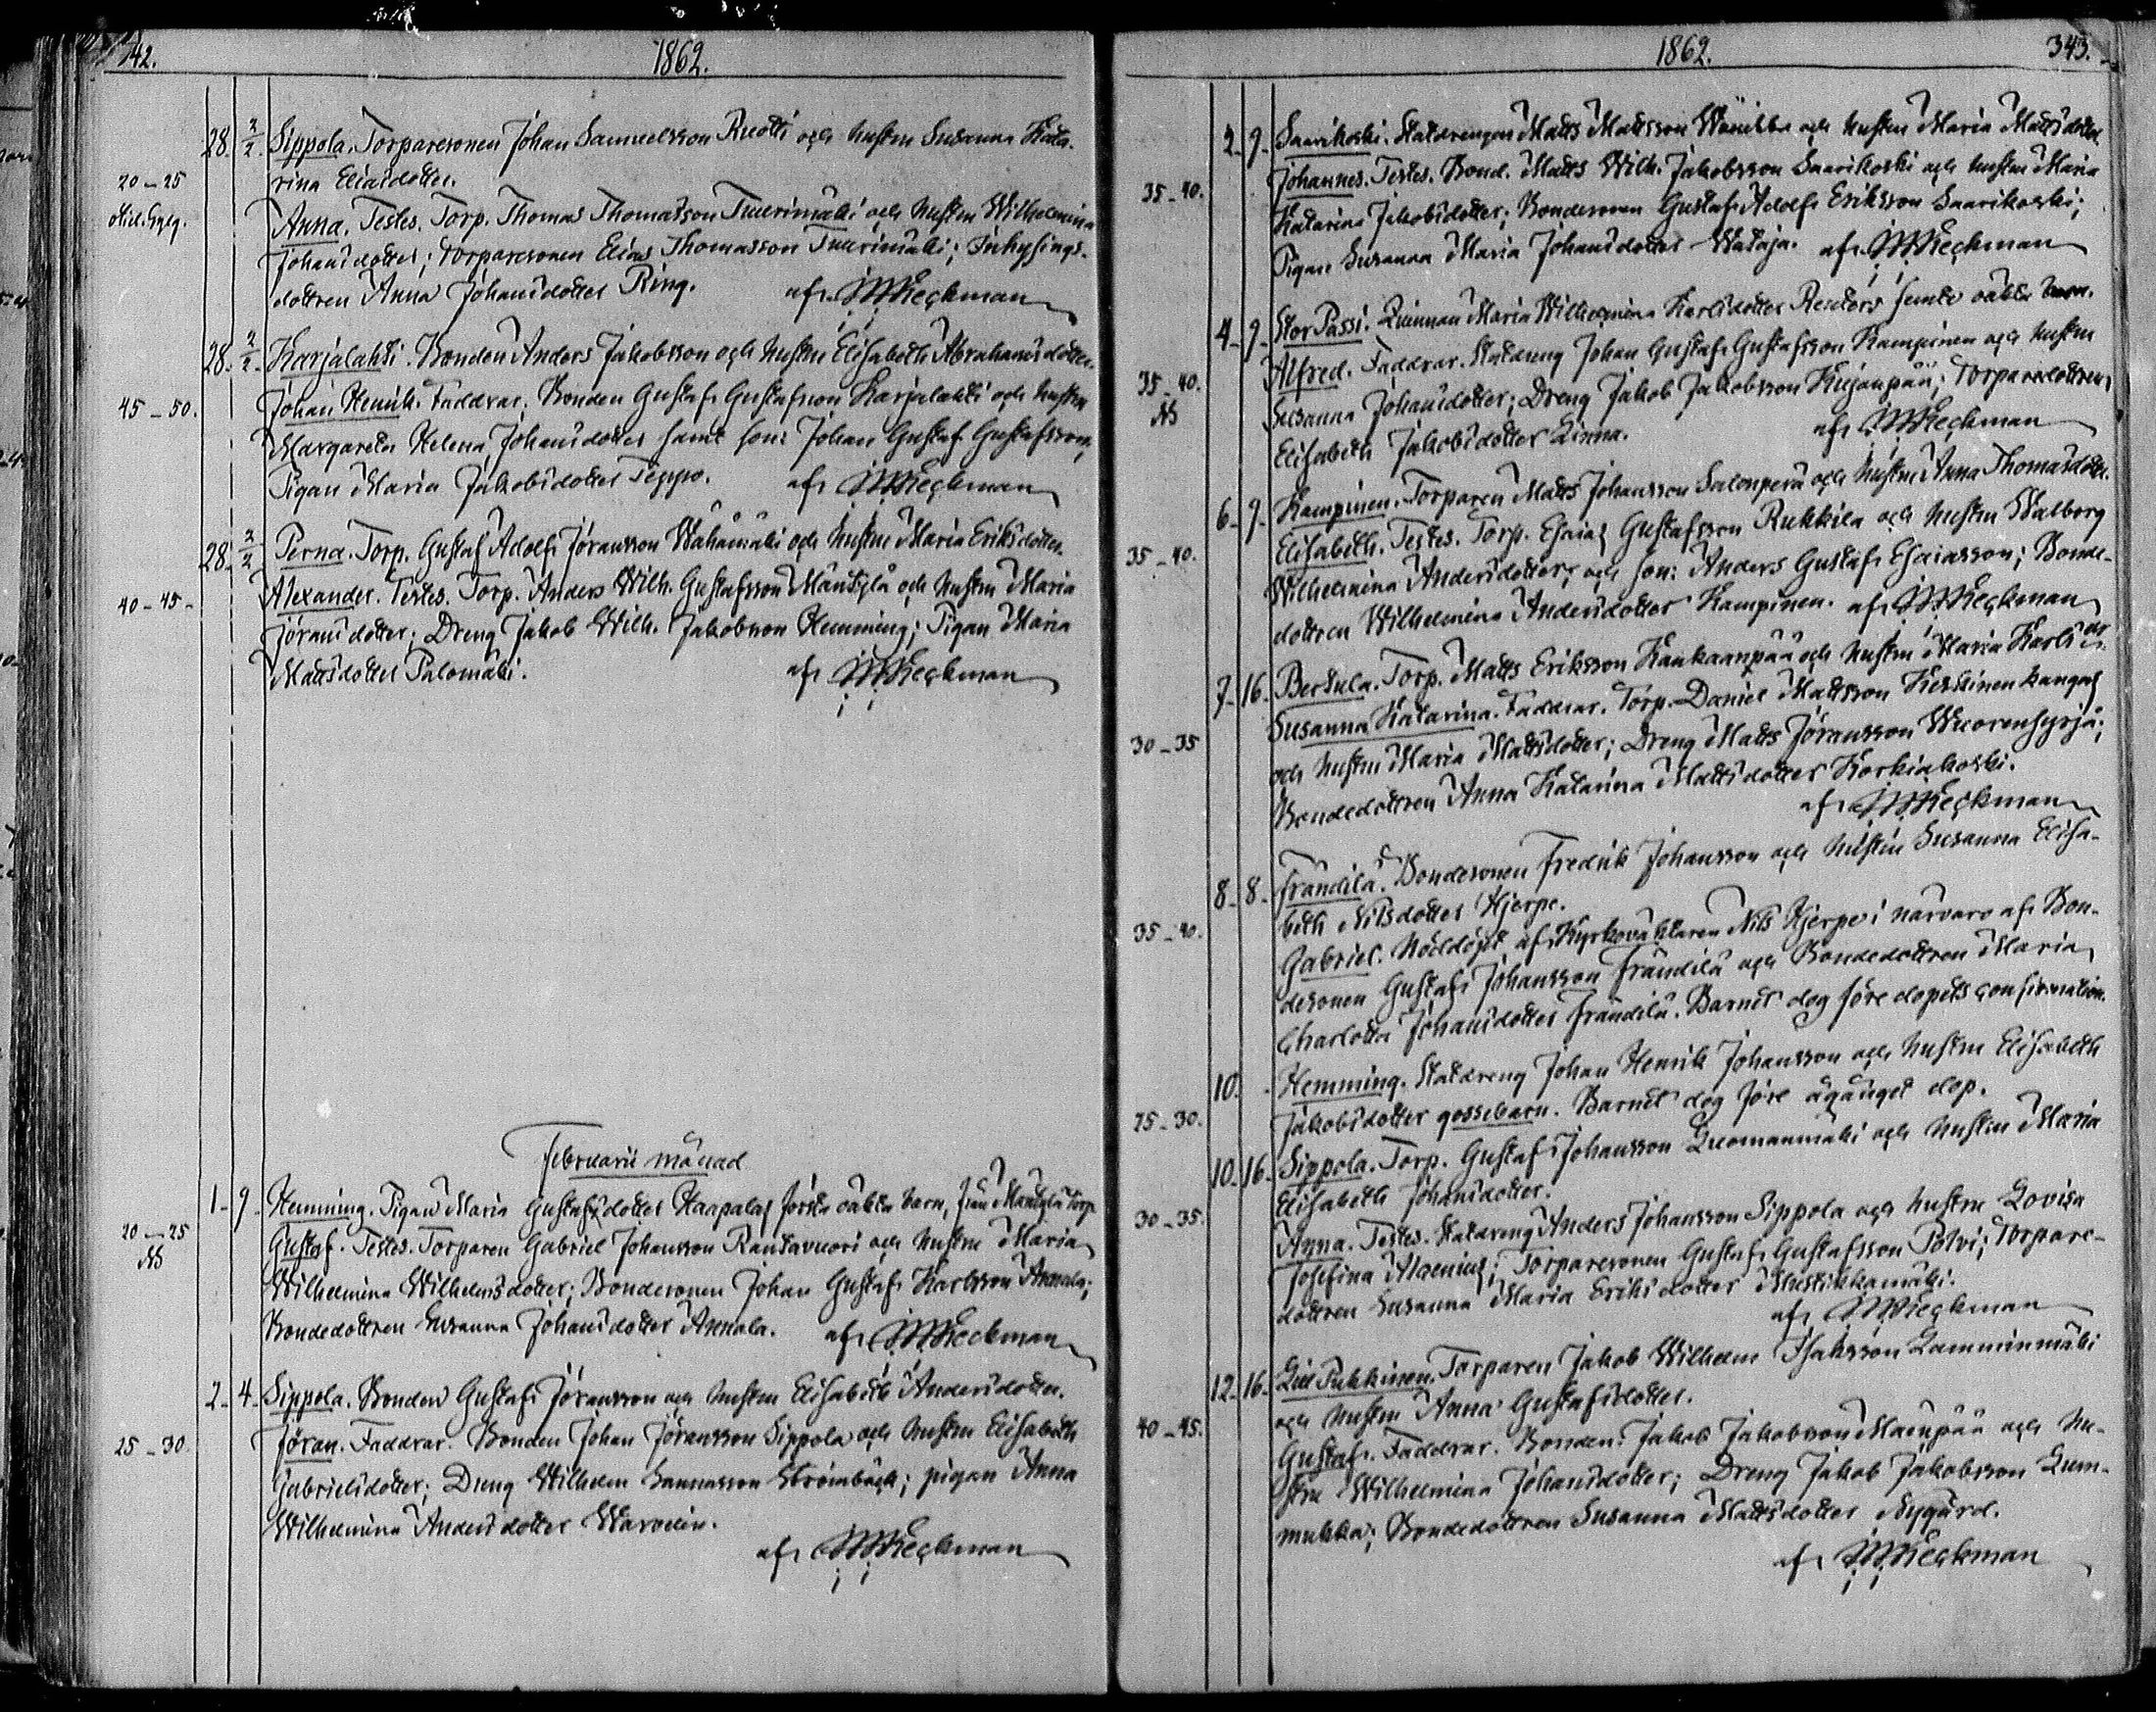 342.
1862.
28. 2/2. Sippola. Torparesonen Johan Samuelsson Ruotti och hustru Susanna Kata-
rina Eliaidotter.
20-25
Anna. Testes. Torp. Thomas Thomasson Tuurimäki och hustru Wilhelmina
Johansdotter; Torparesonen Elias Thomasson Tuurimäki; Inhysings-
dottren Anna Johansdotter Ring. af Heckman
28. 2/2. Karjalahti. Bonden Anders Jakobsson och hustru Elisabeth Abrahamsdotter.
45-50.
Johan Henrik. Faddrar. Bonden Gustaf Gustafsson Karjalahti och hustru
Margareta Helena Johansdotter samt son: Johan Gustaf Gustafsson;
Pigan Maria Jakobsdotter Teppo. af Heckman
28. 2/2. Perna. Torp. Gustaf Adolf Jöransson Wähämäki och hustru Maria Eriksdotter.
40-45-
Alexander. Testes. Torp. Anders Wilh. Gustafsson Mäntylä och hustru Maria
Jöransdotter; Dreng Jakob Wilh. Jakobsson Hemming; Pigan Maria
Mattsdotter Palomäki. af Heckman
Februarii månad
1-9- Hemming. Pigan Maria Gustafsdotter Haapalas första oäkta barn, från Mäntylä Torp
20-25
Gustaf. Testes. Torparen Gabriel Johansson Rantavuori och hustru Maria
Wilhelmina Wilhelmsdotter; Bondesonen Johan Gustaf Karlsson Annala;
Bondedottren Susanna Johansdotter Annala. af Heckman
2-4- Sippola. Bonden Gustaf Jöransson och hustru Elisabeth Andersdotter.
25-30.
Jöran. Faddrar. Bonden Johan Jöransson Sippola och hustru Elisabeth
Gabrielsdotter; Dreng Wilhelm Strömbäck; pigan Anna
Wilhelmina Andersdotter Warvelin.
af Heckman
1862.
343.
2-9- Saarikoski. Statdrengen Matts Mattsson och hustru Maria Mattsdotter.
35-40.
Johannes. Testes. Bond. Matts Wilh. Jakobsson Saarikoski och hustru Maria
Katarina Jakobsdotter; Bondesonen Gustaf Adolf Eriksson Saarikoski;
Pigan Susanna Maria Johansdotter Wataja. af Heckman
4-9- Stor Passi. Quinnan Maria Wilhelmina Karlsdotter Reuters femte oäkta barn.
35-40.
Alfred. Faddrar. Statdreng Johan Gustaf Gustafsson Kampinen och hustru
Susanna Johansdotter; Dreng Jakob Jakobsson Kujanpää; Torparedottren
Elisabeth Jakobsdotter Linna. af Heckman
6-9- Kampinen. Torparen Matts Johansson Salonperä och hustru Anna Thomasdotter.
35-40.
Elisabeth. Testes. Torp. Esaias Gustafsson Rukkila och hustru Walborg
Wilhelmina Andersdotter, och son: Anders Gustaf Esaiasson; Bonde-
dottren Wilhelmina Andersdotter Kampinen. af Heckman
7-16. Bertula. Torp. Matts Eriksson Kankaanpää och hustru Maria Karlsdr
30-35
Susanna Katarina. Faddrar. Torp. Daniel Mattsson Keskinenkangas
och hustru Maria Mattsdotter; Dreng Matts Jöransson Wuorensyrjä;
Bondedottren Anna Katarina Mattsdotter Korkiakoski.
af Heckman
8-8- Frändilä. Bondesonen Fredrik Johansson och hustru Susanna Elisa-
beth Nilsdotter Hjerpe.
35-40.
Gabriel. Nöddöpt af Kyrkoväktaren Nils Hjerpe i närvaro af Bon-
desonen Gustaf Johansson Frändilä och Bondedottren Maria
Charlotta Johansdotter Frändilä. Barnet dog före dopets confirmation.
10. Hemming. Statdreng Johan Henrik Johansson och hustru Elisabeth
25-30.
Jakobsdotter gossebarn. Barnet dog före ägånget dop.
10-16. Sippola. Torp. Gustaf Johansson Luomanmäki och hustru Maria
Elisabeth Johansdotter.
30-35.
Anna. Testes. Statdreng Anders Johansson Sippola och hustru Lovisa
Josefina Alcenius; Torparesonen Gustaf Gustafsson Polvi; Torpare-
dottren Susanna Maria Eriksdotter Mustikkamäki.
af Heckman
12-16. Lill Pukkinen. Torparen Jakob Wilhelm Isaksson Lamminmäki
och hustru Anna Gustafsdotter.
40-45.
Gustaf. Faddrar. Bonden Jakob Jakobsson Mäenpää och hu-
stru Wilhelmina Johansdotter; Dreng Jakob Jakobsson Lum-
mukka; Bondedottren Susanna Mattsdotter Nygård.
af Heckman